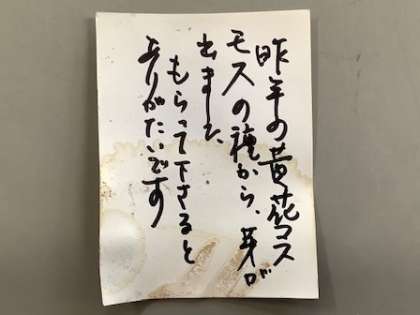 昨年の黄花コス
モスの種から、芽が
出ました
もらって下さると
ありがたいです